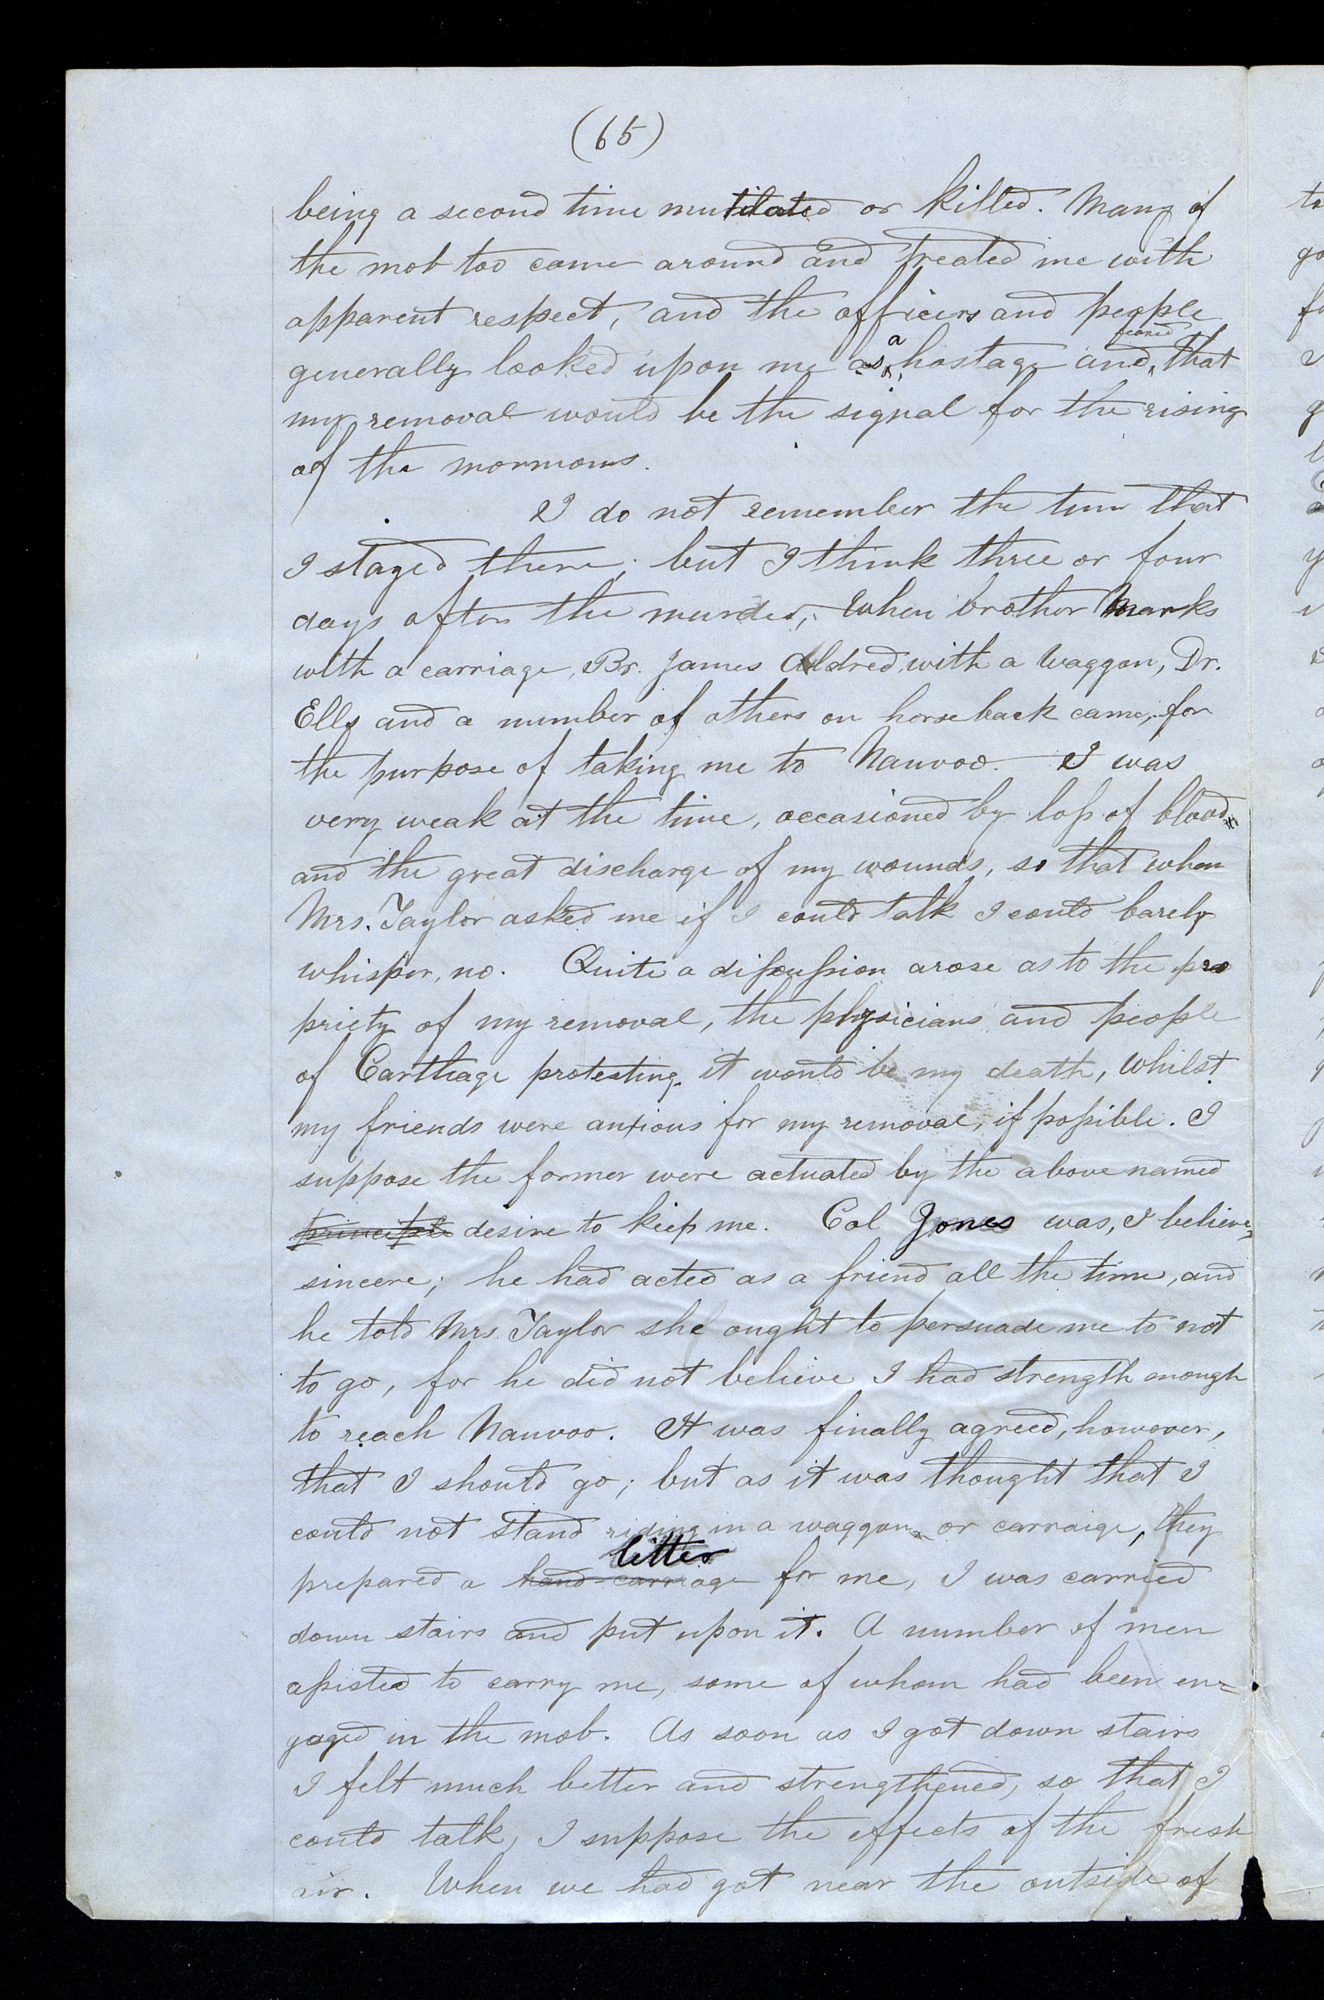 (65)
being a second time mutilated or killed. Many of
the mob too came around and treated me with
apparent respect, and the officers and people
generally looked upon me as a hostage and feared that
my removal would be the signal for the rising
of the mormons.
I do not remember the time that
I stayed there; but I think three or four
days after the murder, When brother Marks
with a carriage, Br. James Aldred, with a waggon, Dr.
Ells and a number of others on horseback came, for
the purpose of taking me to Nauvoo. I was
very weak at the time, occasioned by loss of blood
and the great discharge of my wounds, so that when
Mrs. Taylor asked me if I could talk I could barely
whisper, no. Quite a discussion arose as to the pro
priety of my removal, the physicians and people
of Carthage protesting it would be my death, whilst
my friends were anxious for my removal, if possible. I
suppose the former were actuated by the above named
principle desire to keep me. Col Jones was, I believe,
sincere; he had acted as a friend all the time, and
he told Mrs Taylor she ought to persuade me to not
to go, for he did not believe I had strength enough
to reach Nauvoo. It was finally agreed, however,
that I should go; but as it was thought that I
could not stand riding in a waggon or carraige, they
prepared a hand-carriage litter for me, I was carried
down stairs and put upon it. A number of men
assisted to carry me, some of whom had been en=
gaged in the mob. As soon as I got down stairs
I felt much better and strengthened, so that I
could talk, I suppose the effects of the fresh
air. When we had got near the outside of